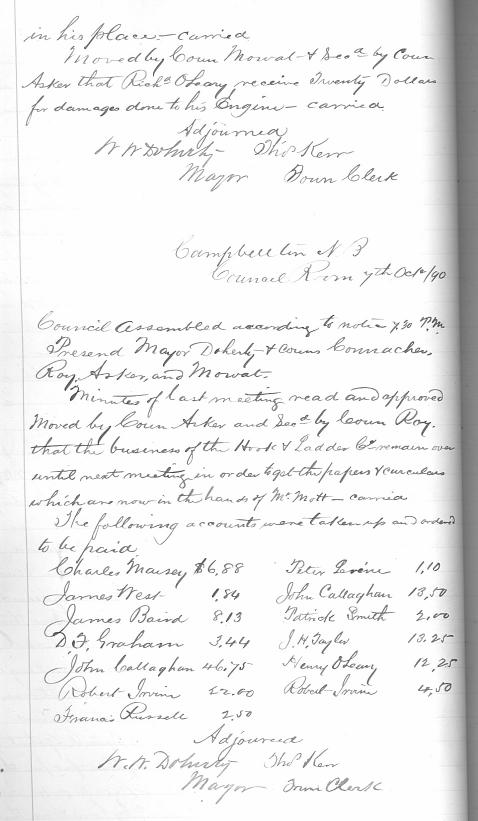 in his place - carried
Moved by Coun Mowat & Secd by Coun
Asker that Richd O'Leary receive Twenty Dollars
for damages done to his Engine - carried
Adjourned
W W Doherty Thos Kerr
Mayor Town Clerk
Campbellton N B
Council Room 7th Octr/90
Council Assembled according to notice 7.30 P.M.
Presend Mayor Doherty & Couns Connacher,
Roy, Asker, and Mowat.
Minutes of last meeting read and approved
Moved by Coun Asker and Secd by Coun Roy.
that the business of the Hook & Ladder Co remain over
until next meeting in order to get the papers & curculars
which are now in the hands of Mr Mott - carried
The following accounts were taken up and ordered
to be paid
Charles Maisey $6.88 Peter 1.10
James West 1.84 John Callaghan 13.50
James Baird 8.13 Patrick Smith 2.00
D.F. Graham 3.44 J.H. Taylor 13.25
John Callaghan 46.75 Henry O'Leary 12.25
Robert Irvine 22.00 Robert Irvine 4.50
Francis Russell 2.50
Adjourned
W.W. Doherty Thos Kerr
Mayor Town Clerk